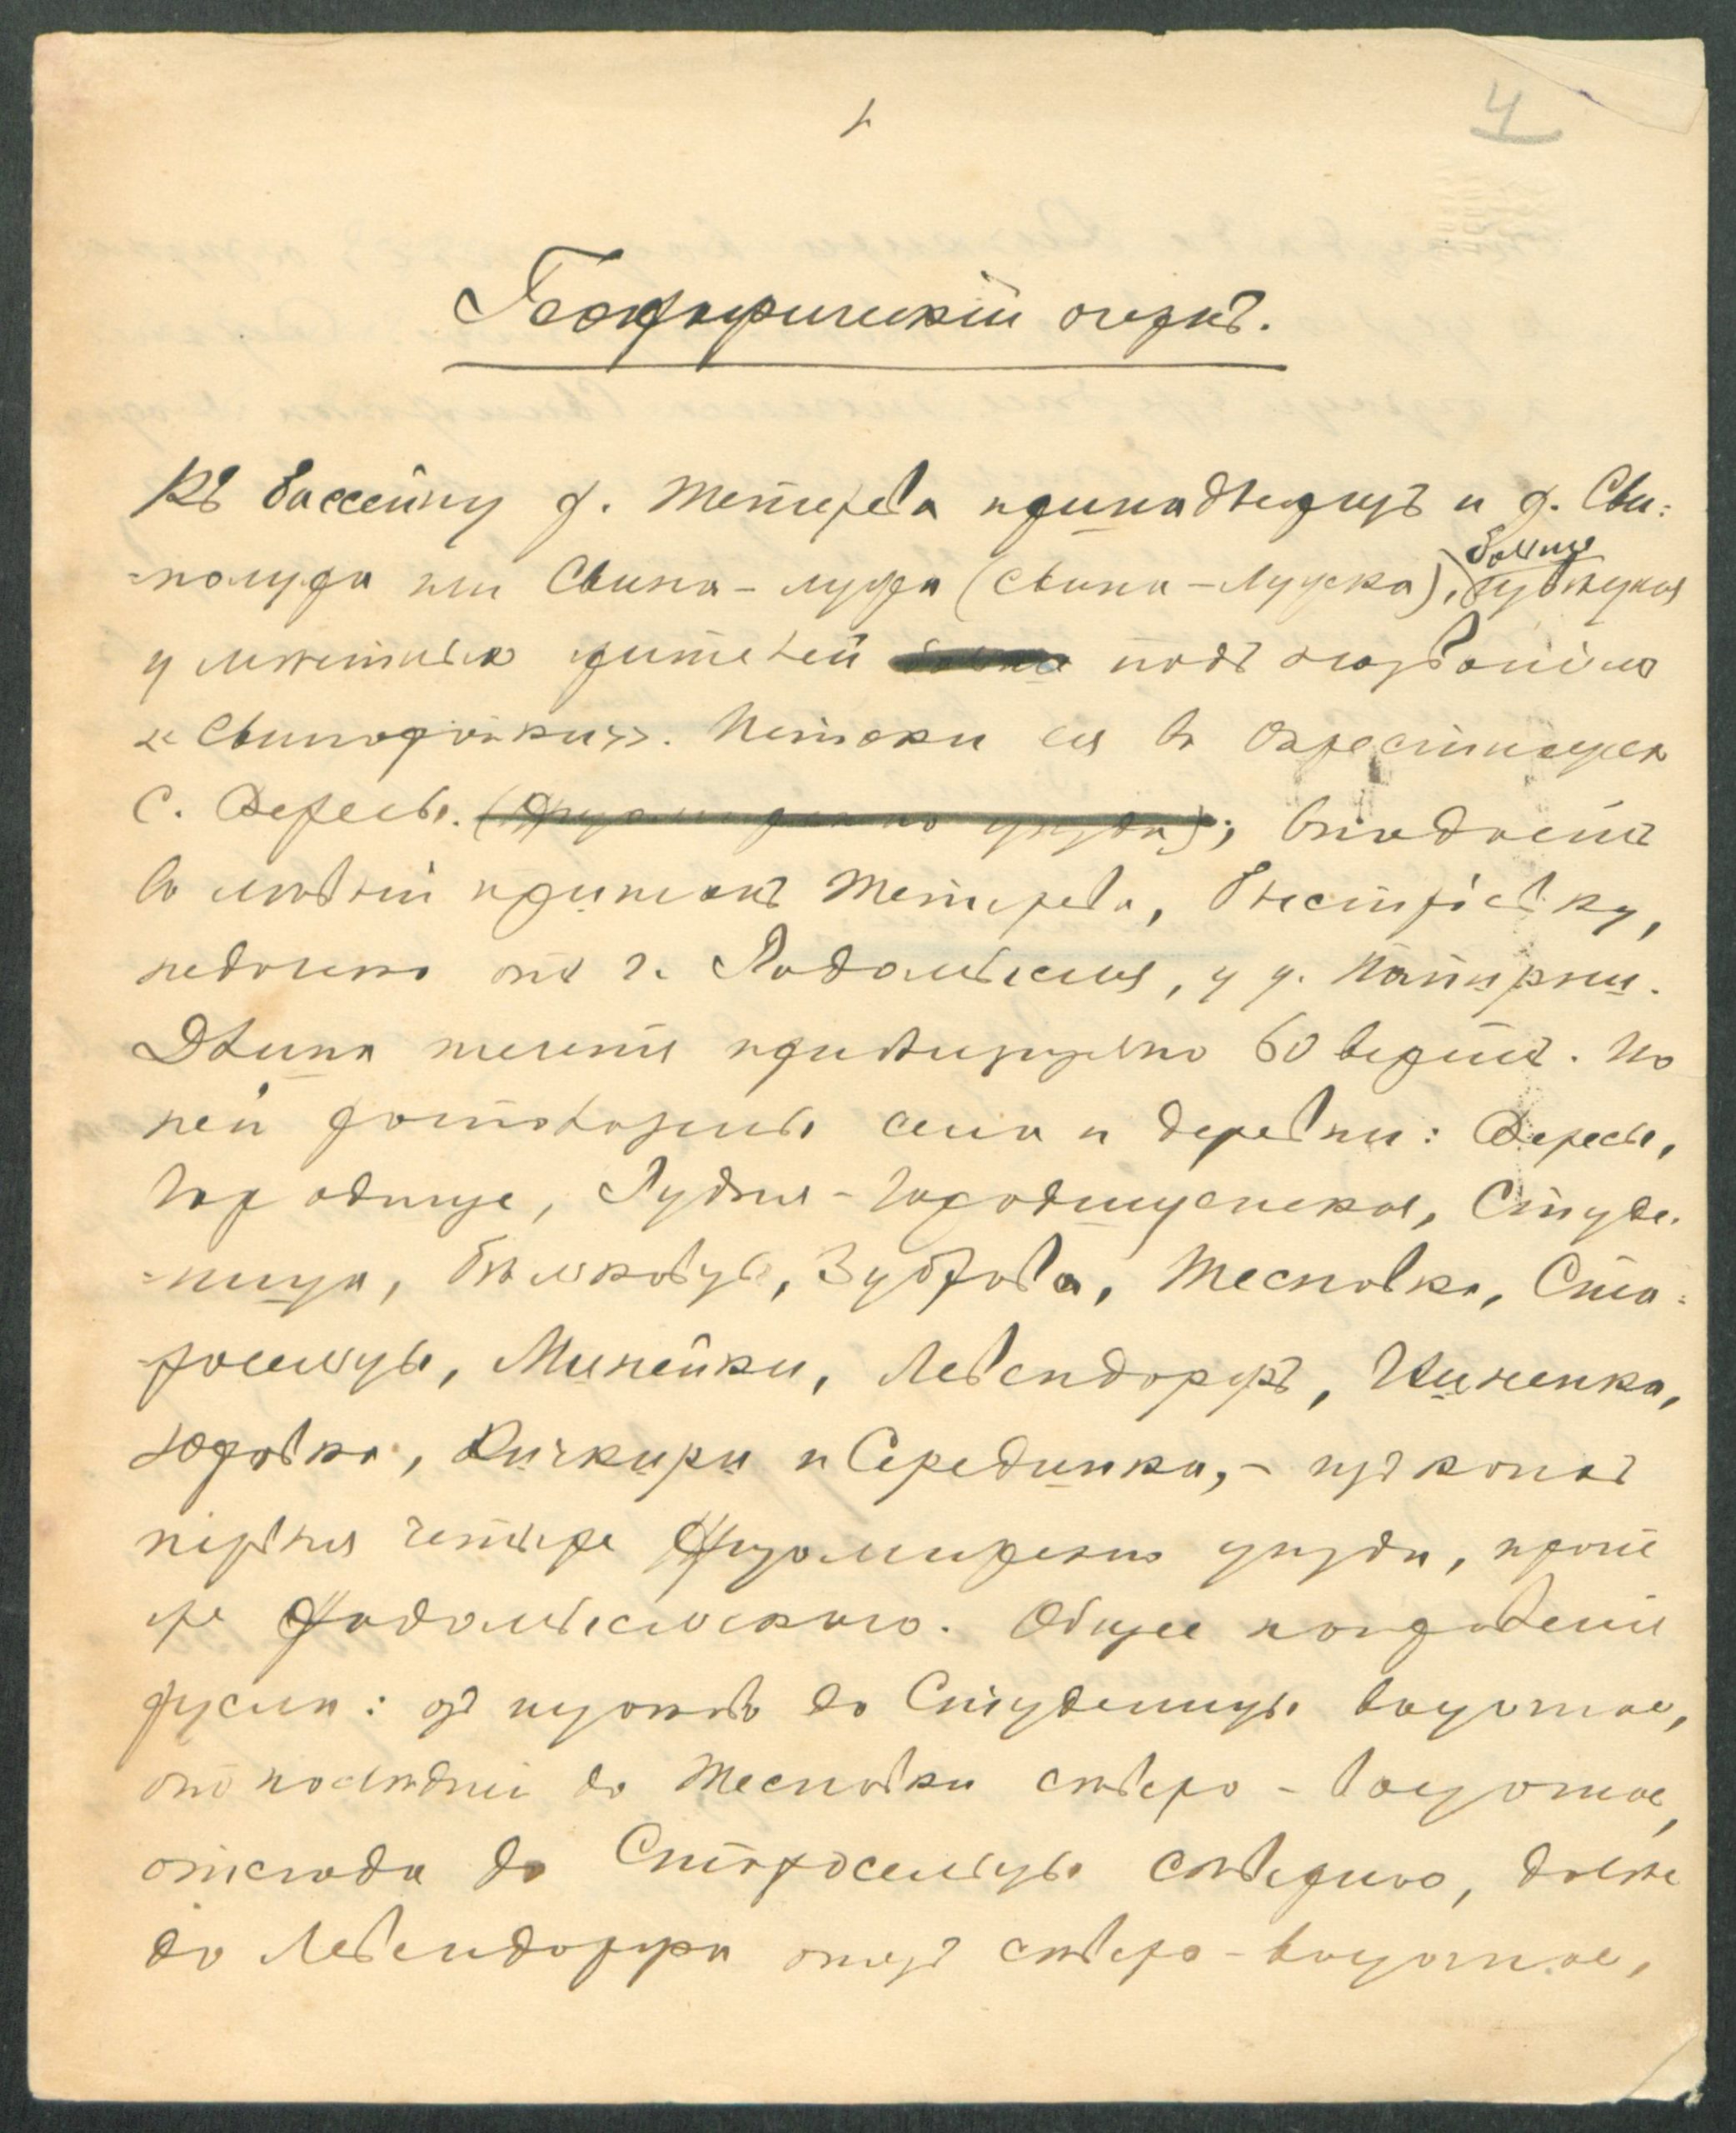 1
4
Географическій очеркъ.
Къ бассейну р. Тетерева принадлежитъ и р. Сви-
-нолужа или Свина-лужа (Свина-Лужска), больше извѣстная
у мѣстныхъ жителей подъ названіемъ
«Свинорійки». Истоки ея въ окрестностяхъ
с. Вересы. (Житомирскаго уѣзда); впадаетъ
въ лѣвый притокъ Тетерева,
недалеко отъ г. Радомысля, у д. Папирни.
Длина теченія приблизительно 60 верстъ. По
ней расположены села и деревни: Вересы,
Городище, Рудня-Городищенская, Студе-
-ница, Бѣлковцы, Зуброва, Тесновка, Ста-
-росельцы, Минейки, Левендорфъ, Ициненка,
Юровка, Кичкири и Серединка, - изъ коихъ
первыя четыре Житомирскаго уѣзда, проч.
же Радомысльскаго. Общее направленіе
русла: отъ истоковъ до Студеницы восточное,
отъ послѣдней до Тесновки сѣверо-восточное,
отсюда до Старосельцы сѣверное, далѣе
до Левендорфа опять сѣверо-восточное,